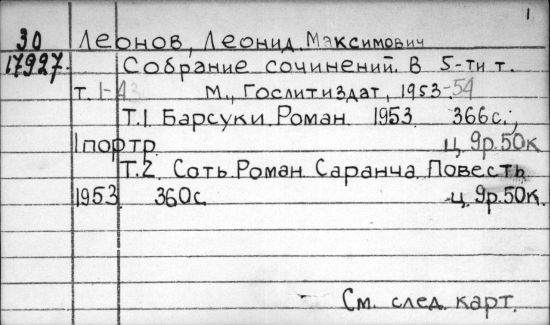 1
30 Леонов, Леонид Максимович
17927. Собрание сочинений. В 5-ти т.
М., Гослитиздат, 1953-54
Т.1. Барсуки. Роман. 1953. 366с.,
1портр. ц. 9р.50к.
Т.2. Соть. Роман. Саранча. Повесть.
1953. 360с. ц. 9р.50к.
См. след. карт.